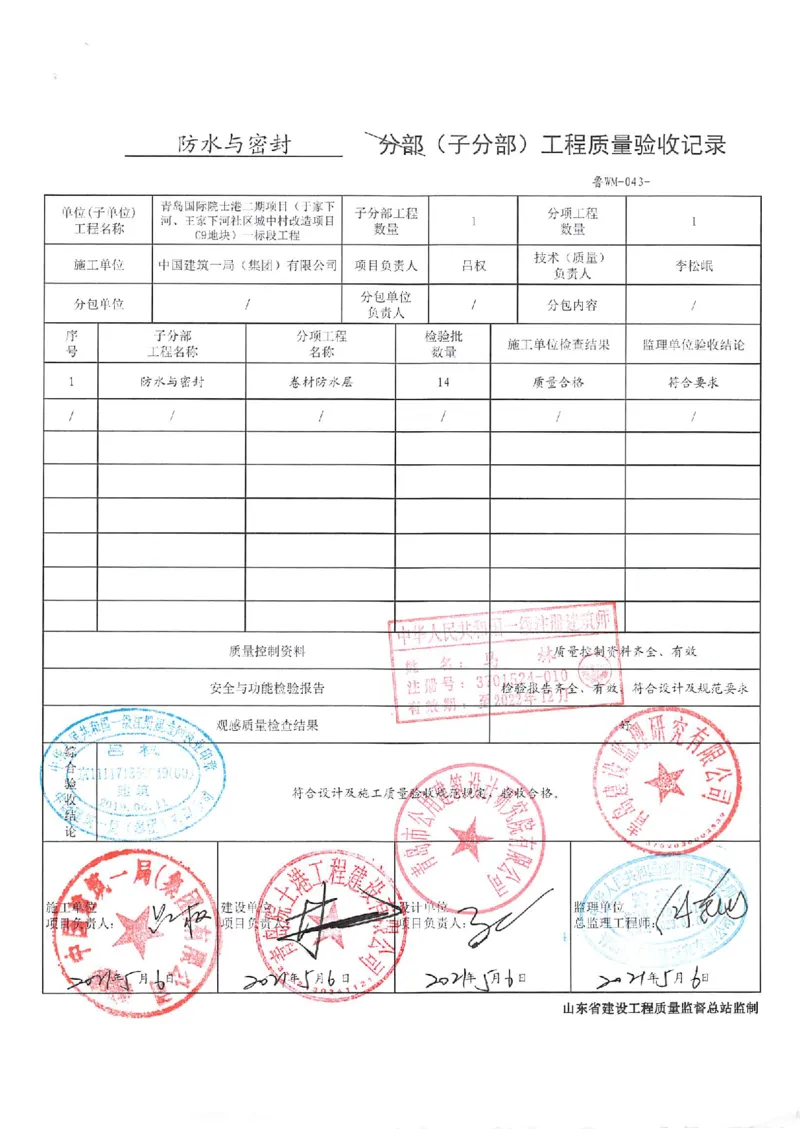 防水与密封 分部（子分部）工程质量验收记录
鲁WM-043-
单位(子单位)工程名称 青岛国际院士港二期项目（于家下河、王家下河社区城中村改造项目C9地块）一标段工程 子分部工程数量 1 分项工程数量 1
施工单位 中国建筑一局（集团）有限公司 项目负责人 吕权 技术（质量）负责人 李松岷
分包单位 / 分包单位负责人 / 分包内容 /
序号 子分部工程名称 分项工程名称 检验批数量 施工单位检查结果 监理单位验收结论
1 防水与密封 卷材防水层 14 质量合格 符合要求
/ / / / / /
质量控制资料 质量控制资料齐全、有效
安全与功能检验报告 检验报告齐全、有效，符合设计及规范要求
观感质量检查结果 好
综合验收结论 符合设计及施工质量验收规范规定，验收合格。
中华人民共和国一级注册建筑师
姓 名：马 林
注册号：3701524-010
有效期：至2022年12月
吕权
建筑
青岛市公用建筑设计研究院有限公司
青岛建设监理研究有限公司
中国建筑一局(集团)有限公司
施工单位
项目负责人：吕权
2021年5月6日
建设单位
项目负责人：
2021年5月6日
设计单位
项目负责人：
2021年5月6日
监理单位
总监理工程师：
2021年5月6日
山东省建设工程质量监督总站监制